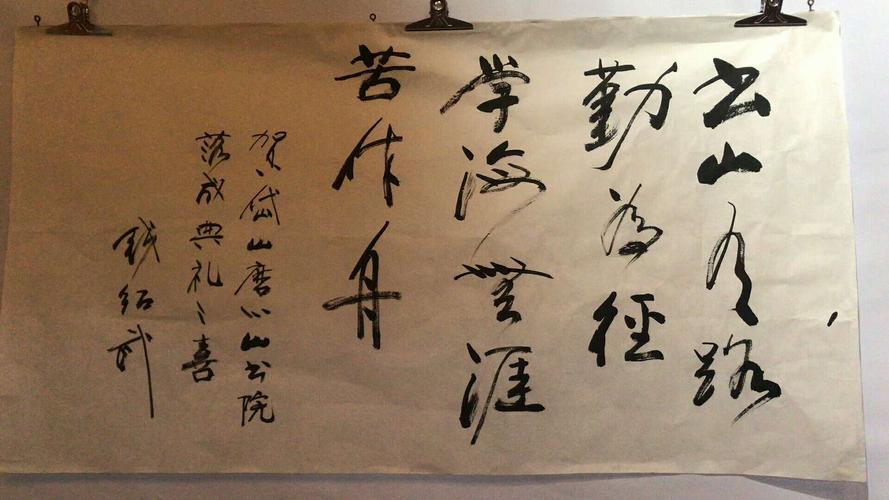 书山有路
勤為徑
学海無涯
苦作舟
贺岱山磨心山书院
落成典礼之喜
钱绍武